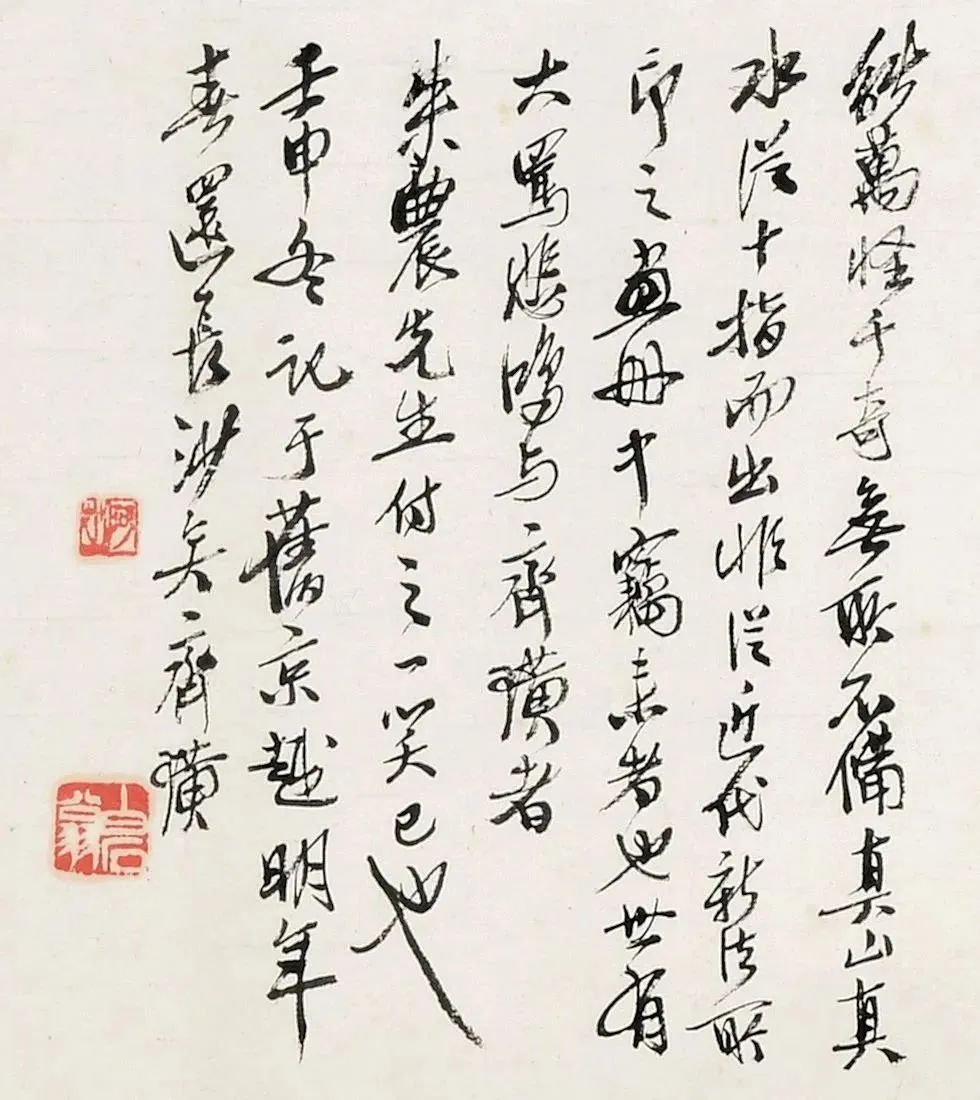 萬怪千奇無所不備真山真
水從十指而出非從近代新法所
印之畫册中竊來者也世有
大罵悲鴻與齊璜者
朱農先生付之一笑已也
壬申冬記于舊京越明年
春還長沙矣齊璜
白石翁